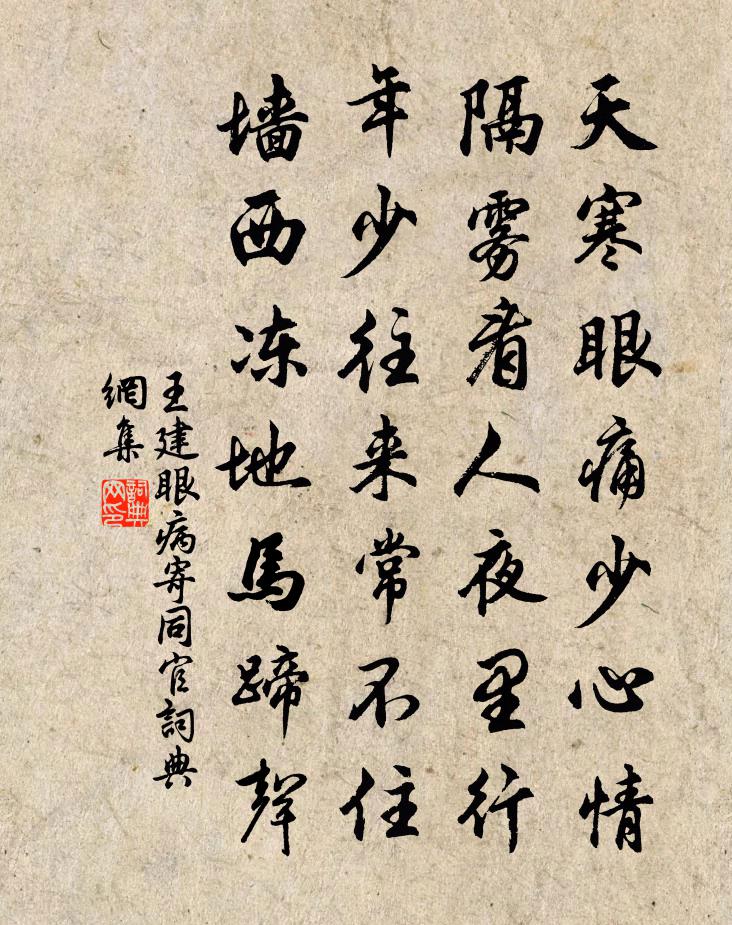 天寒眼痛少心情
隔雾看人夜里行
年少往来常不住
墙西冻地馬蹄聲
王建眼病寄同官詞典
網集
詞典
网印